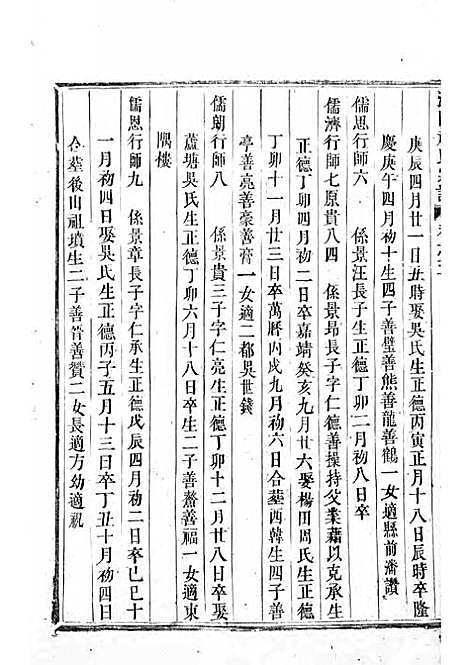 庚辰四月廿一日丑時娶吳氏生正德丙寅正月十八日辰時卒隆
慶庚午四月初十生子善璧善熊善龍善鶴一女適縣前潘讚
儒思行師六 係景汪長子生正德丁卯二月初八日卒
儒濟行師七原貴八四 係景昂長子字仁德善操持父業藉以克承生
正德丁卯四月初二日卒嘉靖癸亥九月廿六娶楊田周氏生正德
丁卯十一月廿三日卒萬曆丙戌九月初六日合塟西韓生四子善
亭善亮善豪善膏一女適二都吳世錢
儒朝行師八 係景貴三子字仁亮生正德丁卯十二月廿八日卒娶
蘆塘吳氏生正德丁卯六月十八日卒生二子善鰲善福一女適東
隅樓
儒恩行師九 係景章長子字仁承生正德戊辰四月初二日卒己巳十
一月初四日娶吳氏生正德丙子五月十三日卒丁丑十月初四日
合塟後山祖墳生二子善晉善贊二女長適方幼適祝